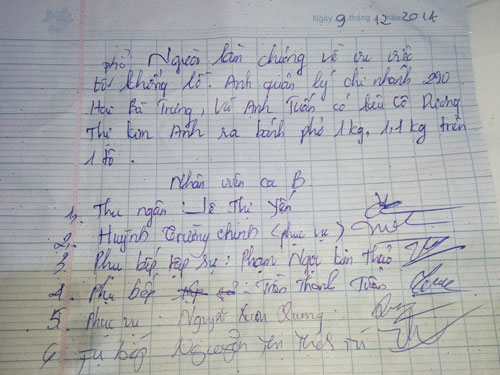 Ngày 9 tháng 12 . 2014
phở Người làm chứng về vụ việc
tô khổng lồ. Anh quản lý chi nhánh 290
Hai Bà Trưng, và Anh Tuấn có kêu cô Dương
Thị Kim Anh ra bánh phở 1 kg, 1,1 kg trên
1 tô.
Nhân viên ca B
1. Thu ngân : Lê Thị Yến
2. Huỳnh Trường chinh (phục vụ)
3. Phụ bếp : Phạm Ngọc
4. Phụ bếp : Trần Thanh Tuấn
5. Phục vụ : Nguyễn Xuân
6 Tạp bếp Nguyễn